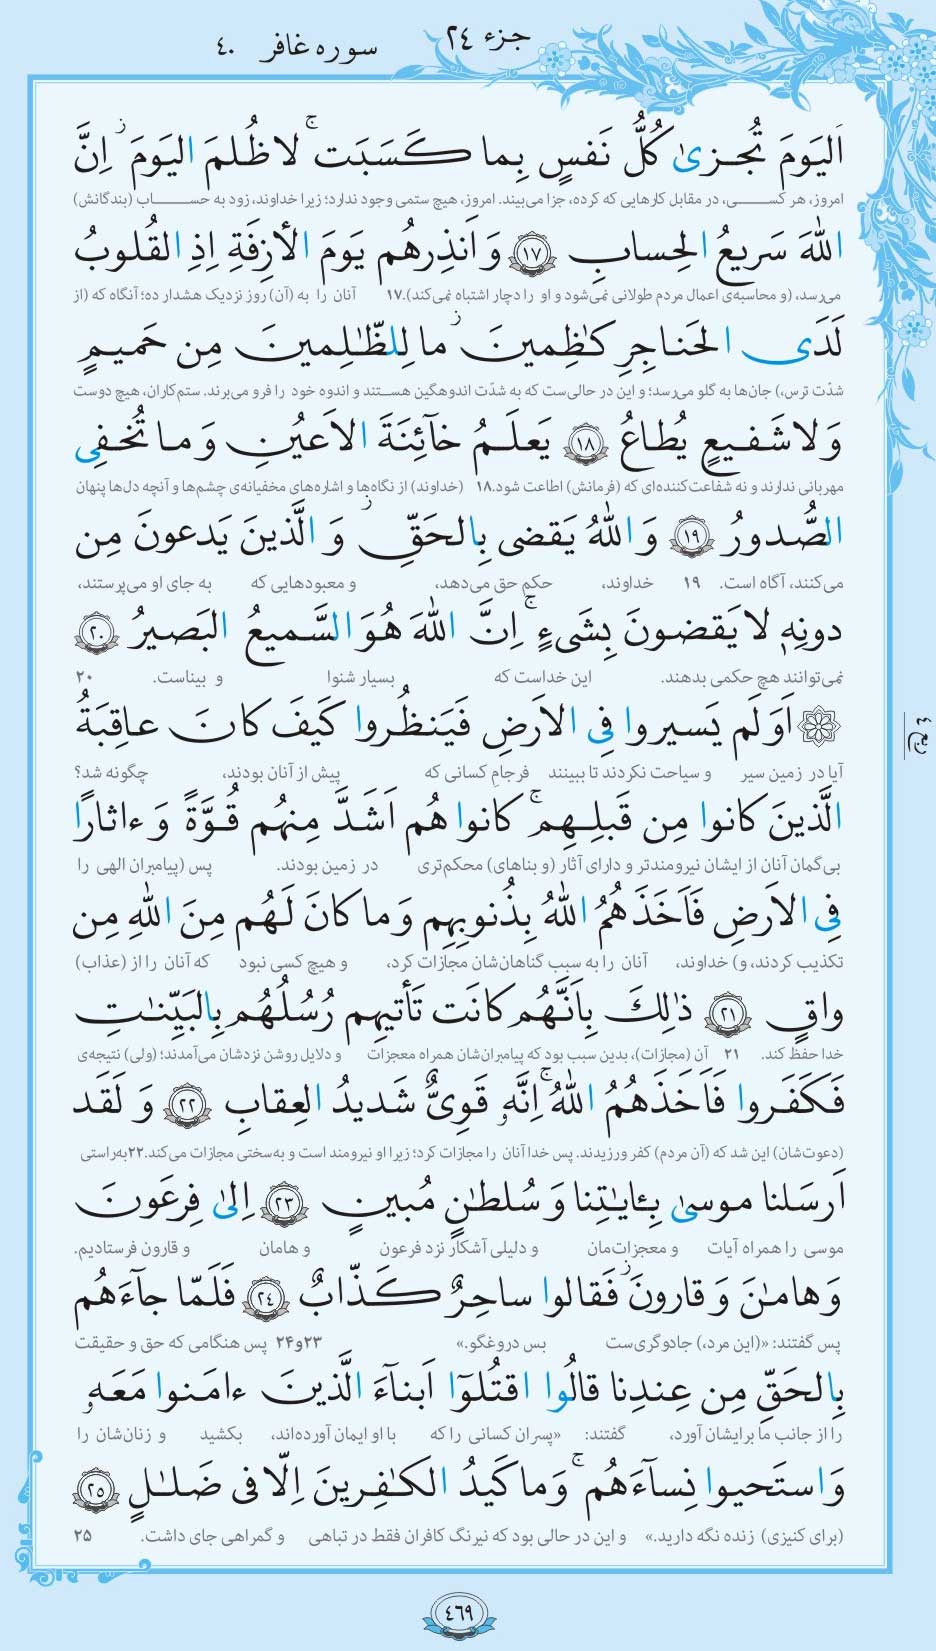 جزء ٢٤
سوره غافر ٤٠
اَليَومَ تُجـزىٰ كُلُّ نَفسٍ بِما كَسَبَت ۚ لا ظُلمَ اليَومَ ۚ اِنَّ
امروز، هر کســـی، در مقابل کارهایی که کرده، جزا می‌بیند. امروز، هیچ ستمی وجود ندارد؛ زیرا خداوند، زود به حســـاب (بندگانش)
اللّٰهَ سَريعُ الحِسابِ ﴿١٧﴾ وَ اَنذِرهُم يَومَ الأزِفَةِ اِذِ القُلوبُ
می‌رسد، (و محاسبه‌ی اعمال مردم طولانی نمی‌شود و او را دچار اشتباه نمی‌کند).۱۷ آنان را به (آن) روز نزدیک هشدار ده؛ آنگاه که (از
لَدَى الحَناجِرِ كٰظِمينَ ۚ ما لِلظّٰلِمينَ مِن حَميمٍ
شدّت ترس،) جان‌ها به گلو می‌رسد؛ و این در حالی‌ست که به شدّت اندوهگین هســتند و اندوه خود را فرو می‌برند. ستم‌کاران، هیچ دوست
وَ لا شَفيعٍ يُطاعُ ﴿١٨﴾ يَعلَمُ خآئِنَةَ الاَعيُنِ وَ ما تُخفِى
مهربانی ندارند و نه شفاعت‌کننده‌ای که (فرمانش) اطاعت شود.۱۸ (خداوند) از نگاه‌ها و اشاره‌های مخفیانه‌ی چشم‌ها و آنچه دل‌ها پنهان
الصُّدورُ ﴿١٩﴾ وَ اللّٰهُ يَقضى بِالحَقِّ ۚ وَ الَّذينَ يَدعونَ مِن
می‌کنند، آگاه است. ۱۹ خداوند، حکم حق می‌دهد، و معبودهایی که به جای او می‌پرستند،
دونِهٖ لا يَقضونَ بِشَىءٍ ۚ اِنَّ اللّٰهَ هُوَ السَّميعُ البَصيرُ ﴿٢٠﴾
نمی‌توانند هیچ حکمی بدهند. این خداست که بسیار شنوا و بیناست. ۲۰
۞ اَوَلَم يَسيروا فِى الاَرضِ فَيَنظُروا كَيفَ كانَ عاقِبَةُ
آیا در زمین سیر و سیاحت نکردند تا ببینند فرجام کسانی که پیش از آنان بودند، چگونه شد؟
الَّذينَ كانوا مِن قَبلِهِم ۚ كانوا هُم اَشَدَّ مِنهُم قُوَّةً وَ ءاثارًا
بی‌گمان آنان از ایشان نیرومندتر و دارای آثار (و بناهای) محکم‌تری در زمین بودند. پس (پیامبران الهی را
فِى الاَرضِ فَاَخَذَهُمُ اللّٰهُ بِذُنوبِهِم وَ ما كانَ لَهُم مِنَ اللّٰهِ مِن
تکذیب کردند، و) خداوند، آنان را به سبب گناهان‌شان مجازات کرد، و هیچ کسی نبود که آنان را از (عذاب)
واقٍ ﴿٢١﴾ ذٰلِكَ بِاَنَّهُم كانَت تَأتيهِم رُسُلُهُم بِالبَيِّنٰتِ
خدا حفظ کند. ۲۱ آن (مجازات)، بدین سبب بود که پیامبران‌شان همراه معجزات و دلایل روشن نزدشان می‌آمدند؛ (ولی) نتیجه‌ی
فَكَفَروا فَاَخَذَهُمُ اللّٰهُ ۚ اِنَّهٗ قَوِىٌّ شَديدُ العِقابِ ﴿٢٢﴾ وَ لَقَد
(دعوت‌شان) این شد که (آن مردم) کفر ورزیدند. پس خدا آنان را مجازات کرد؛ زیرا او نیرومند است و به‌سختی مجازات می‌کند.۲۲ به‌راستی
اَرسَلنا موسىٰ بِـٔايٰتِنا وَ سُلطٰنٍ مُبينٍ ﴿٢٣﴾ اِلىٰ فِرعَونَ
موسی را همراه آیات و معجزات‌مان و دلیلی آشکار نزد فرعون و هامان و قارون فرستادیم.
وَ هامٰنَ وَ قارونَ فَقالوا ساحِرٌ كَذّابٌ ﴿٢٤﴾ فَلَمّا جآءَهُم
پس گفتند: «(این مرد،) جادوگری‌ست بس دروغگو.» ۲۳و۲۴ پس هنگامی که حق و حقیقت
بِالحَقِّ مِن عِندِنا قالُوا اقتُلوٓا اَبنآءَ الَّذينَ ءامَنوا مَعَهٗ
را از جانب ما برایشان آورد، گفتند: «پسران کسانی را که با او ایمان آورده‌اند، بکشید و زنان‌شان را
وَ استَحيوا نِسآءَهُم ۚ وَ ما كَيدُ الكٰفِرينَ اِلّا فى ضَلٰلٍ ﴿٢٥﴾
(برای کنیزی) زنده نگه دارید.» و این در حالی بود که نیرنگ کافران فقط در تباهی و گمراهی جای داشت. ۲۵
ربع ٤
٤٦٩